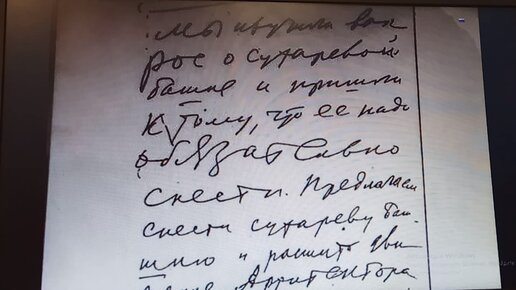 Мы изучили воп
рос о Сухаревой
башне и пришли
к тому, что ее надо
обязательно
снести. Предлагаем
снести сухареву баш
ню и расширить дви
Архитектора